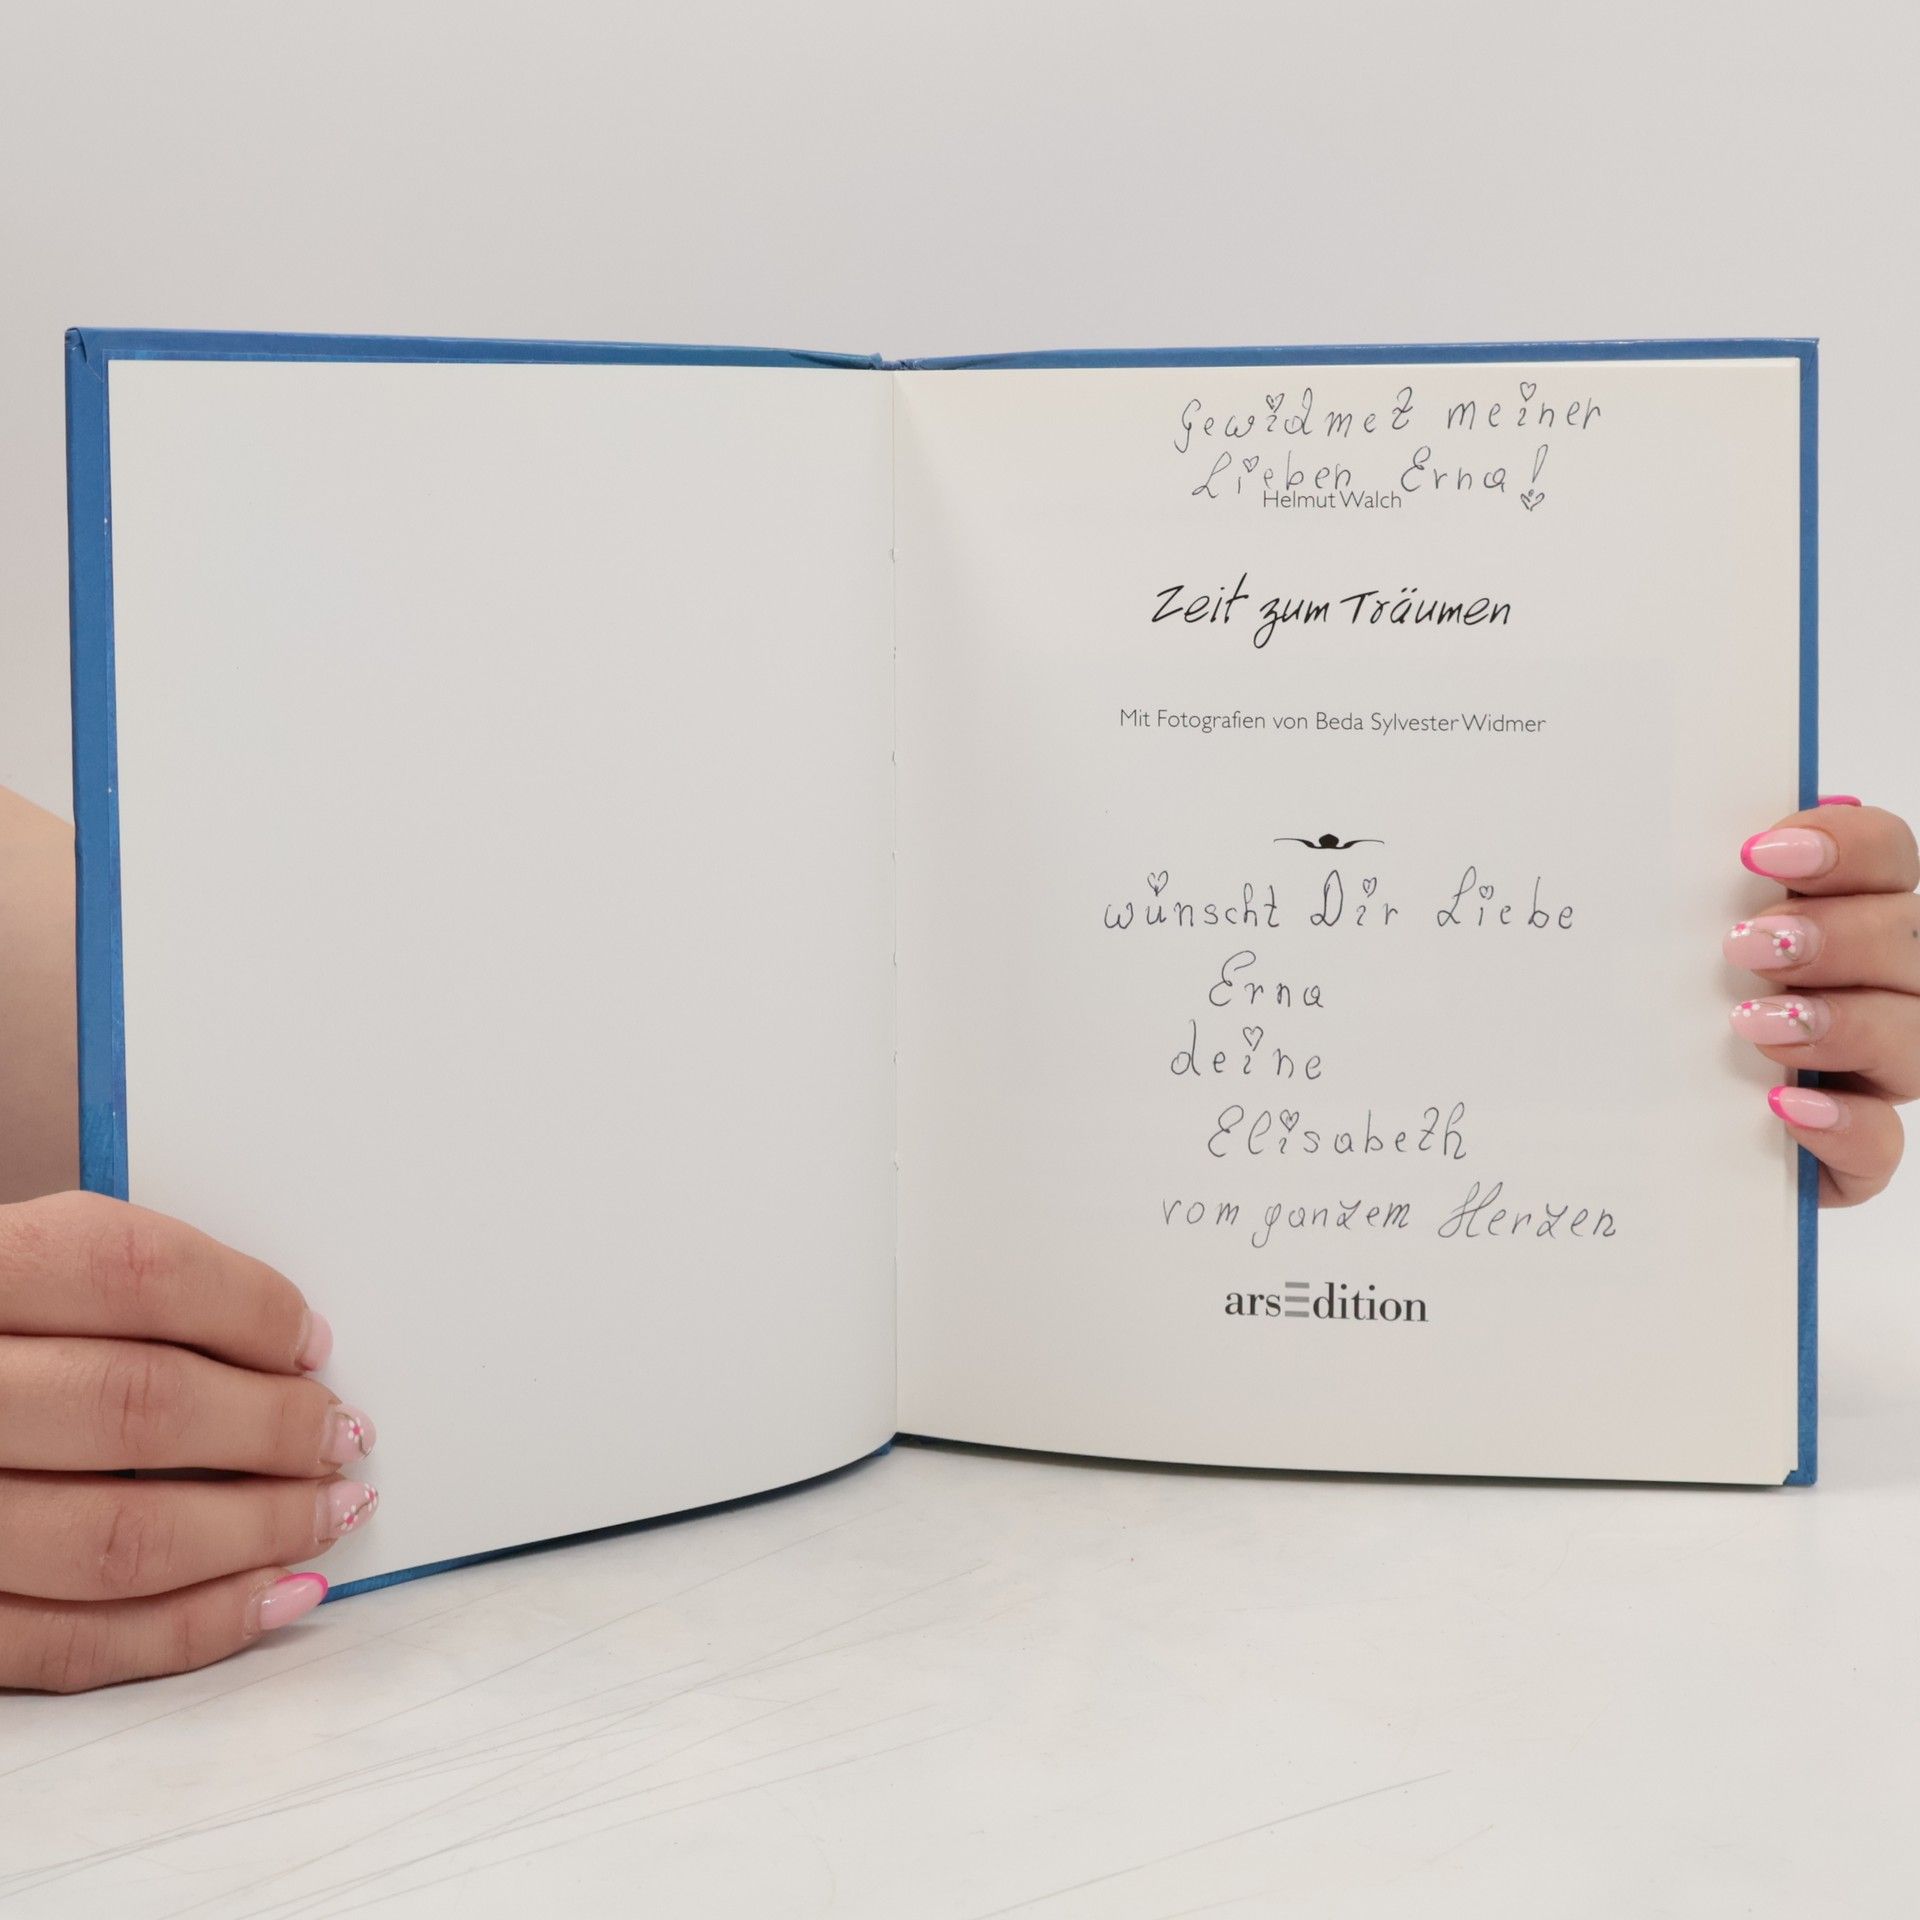 Gewidmet meiner
Lieben Erna!
Helmut Walch
Zeit zum Träumen
Mit Fotografien von Beda Sylvester Widmer
wünscht Dir Liebe
Erna
deine
Elisabeth
vom ganzem Herzen
arsEdition